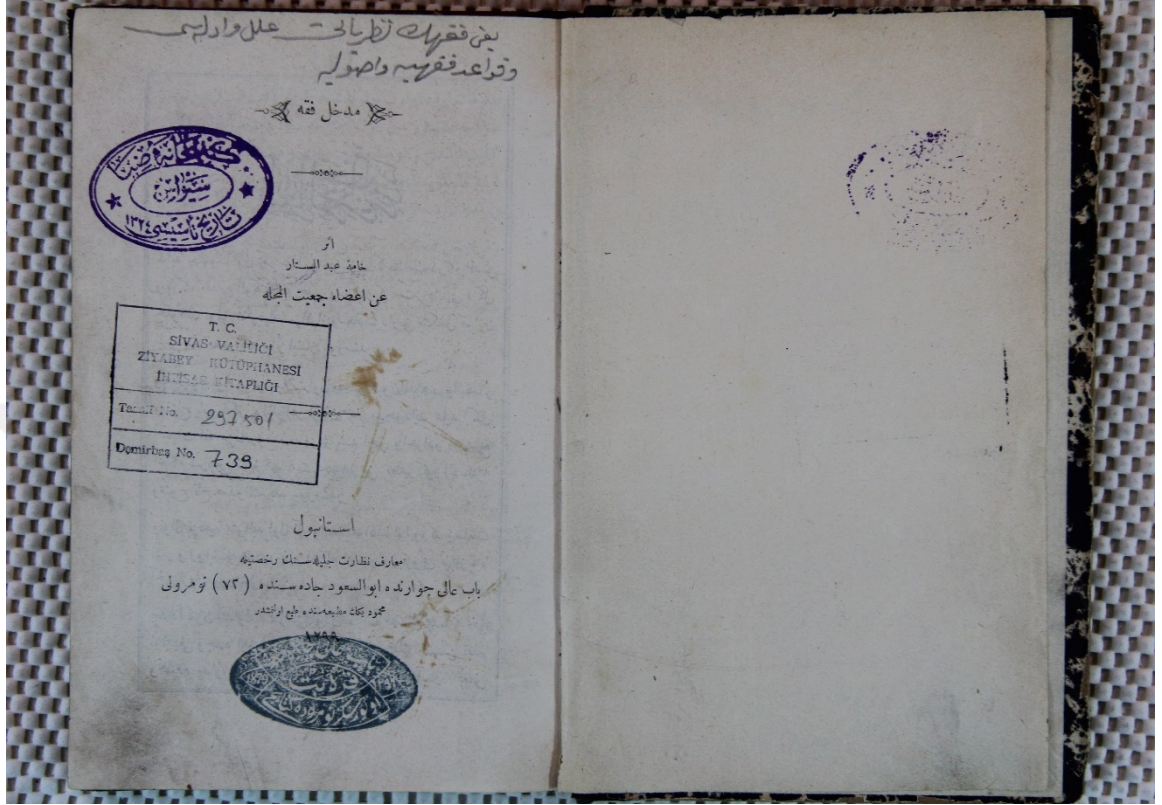 يعنى فقهك نظرياتى علل وادله سى
وقواعد فقهيه واصوليه
مدخل فقه
كتبخانهٔ ضيا
سيواس
تاريخ تأسيسى ١٣٢٤
اثر
خامهٔ عبد الستار
عن اعضاء جمعيت المجله
T. C.
SİVAS VALİLİĞİ
ZİYABEY KÜTÜPHANESİ
İHTİSAS KİTAPLIĞI
Tasnif No. 297 501
Demirbaş No. 739
استانبول
معارف نظارت جليله سنك رخصتيله
باب عالى جوارنده ابوالسعود جاده سنده (٧٢) نومرولى
محمود بكك مطبعه سنده طبع اولنمشدر
١٢٩٩